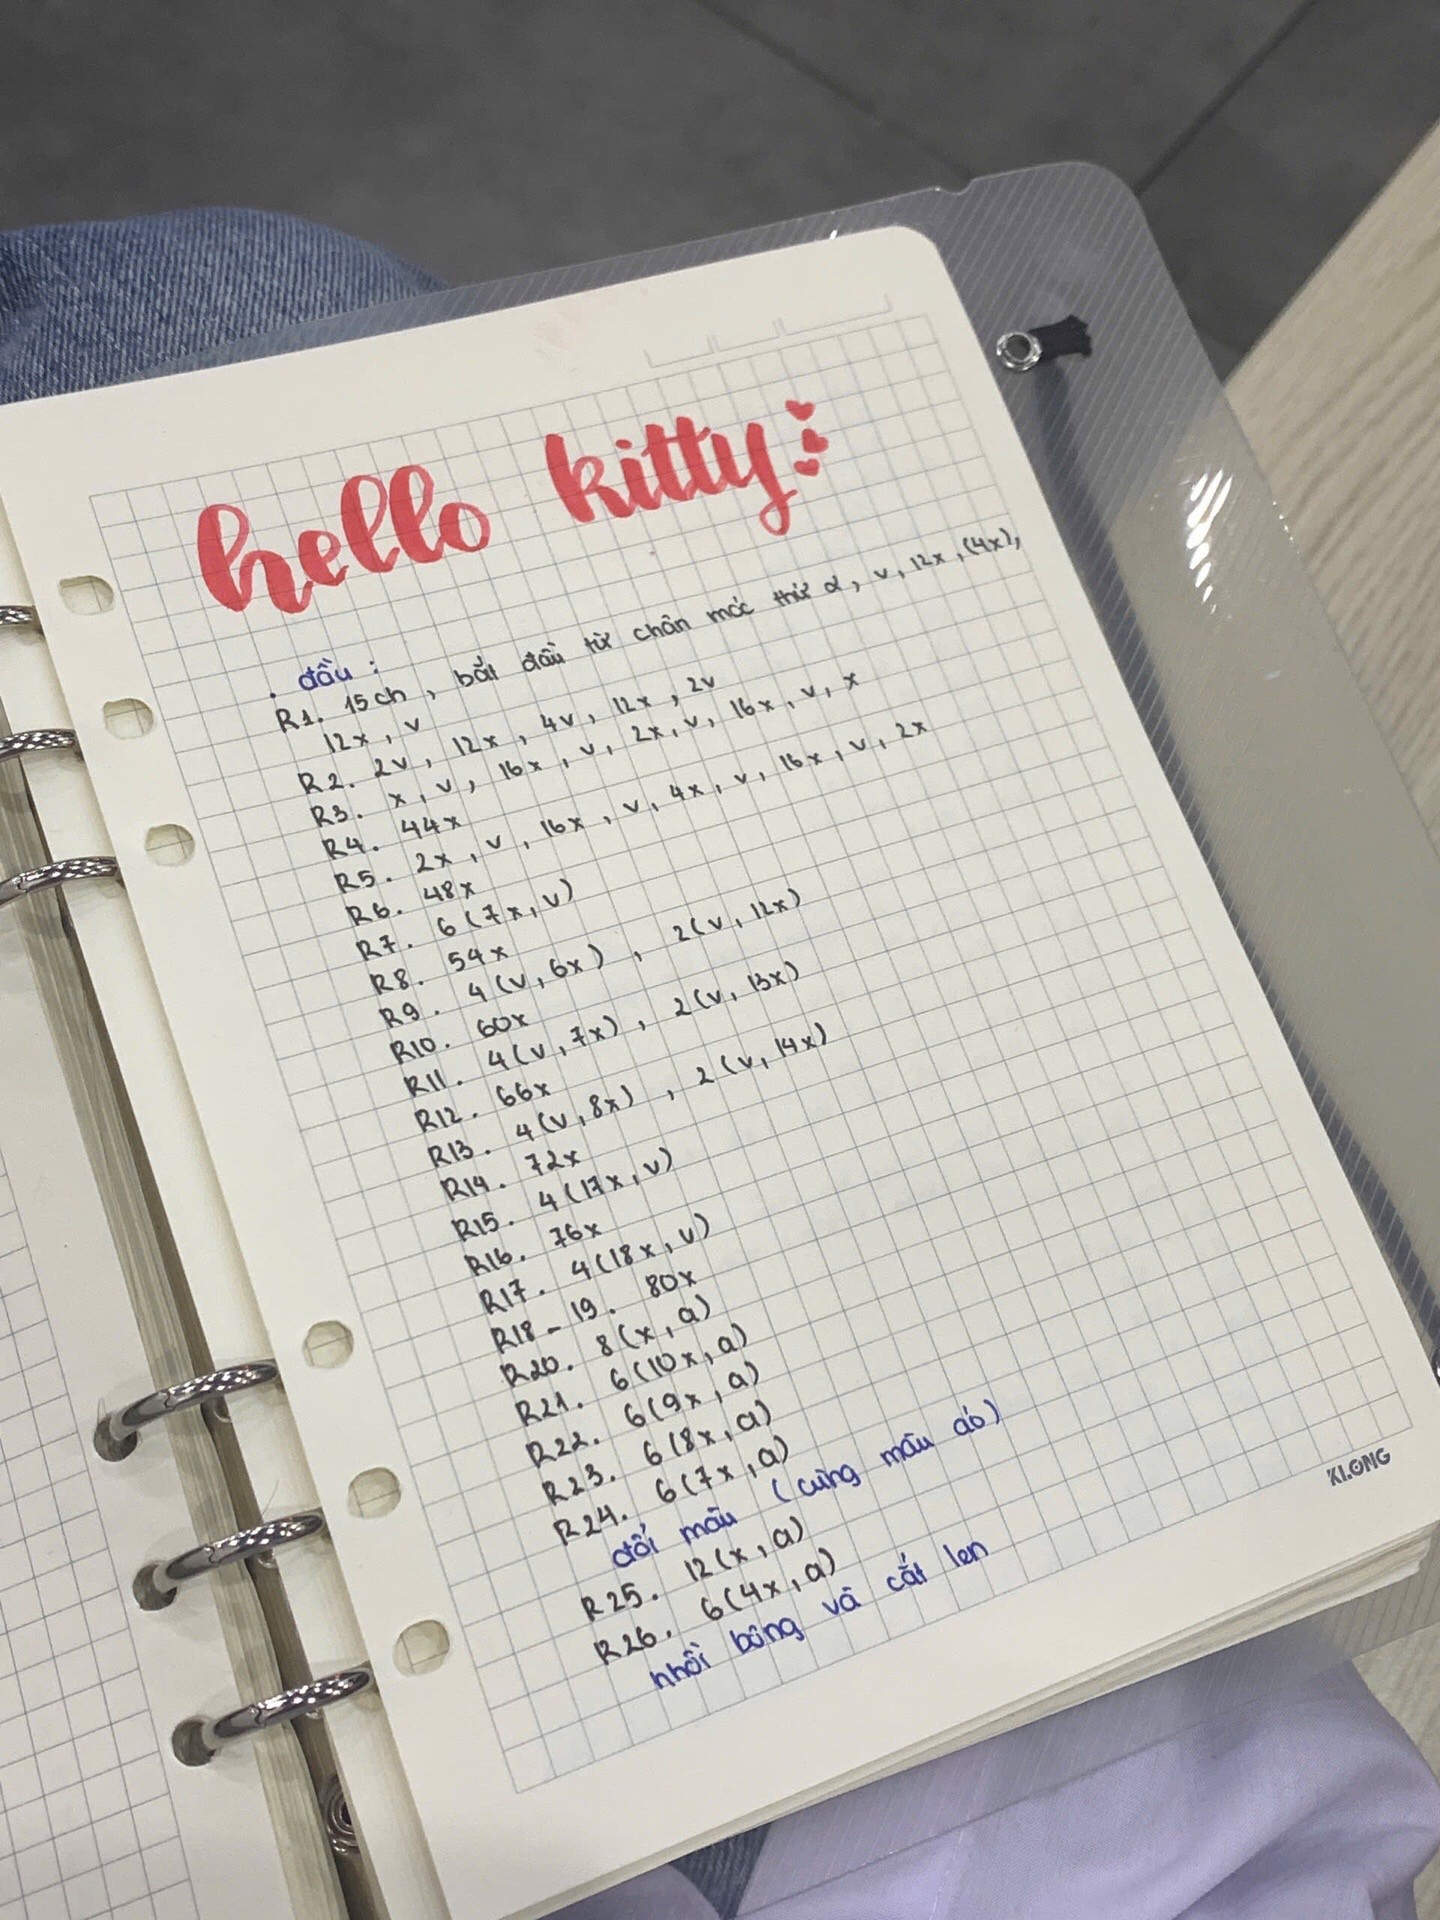 hello kitty
. đầu :
R1. 15ch , bắt đầu từ chân móc thứ 2 , v , 12x , (4x) ,
12x , v
R2. 2v , 12x , 4v , 12x , 2v
R3. x , v , 16x , v , 2x , v , 16x , v , x
R4. 44x
R5. 2x , v , 16x , v , 4x , v , 16x , v , 2x
R6. 48x
R7. 6 (7x , v)
R8. 54x
R9. 4 (v , 6x) , 2(v , 12x)
R10. 60x
R11. 4(v , 7x) , 2(v , 13x)
R12. 66x
R13. 4(v , 8x) , 2(v , 14x)
R14. 72x
R15. 4(17x , v)
R16. 76x
R17. 4(18x , v)
R18 - 19. 80x
R20. 8(x , a)
R21. 6(10x , a)
R22. 6(9x , a)
R23. 6(8x , a)
R24. 6(7x , a)
đổi màu (cùng màu áo)
R25. 12(x , a)
R26. 6(4x , a)
nhồi bông và cắt len
KLONG